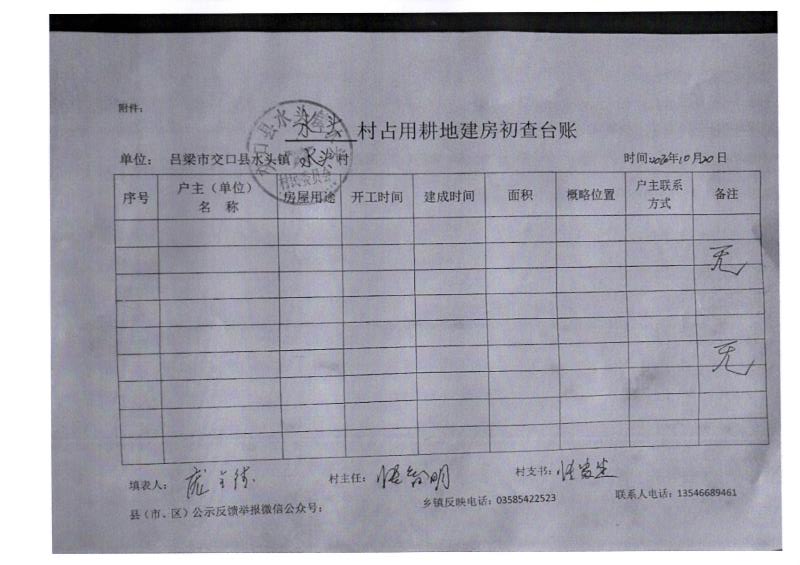 附件：
水头 村占用耕地建房初查台账
单位：吕梁市交口县水头镇 水头 村 时间 2020年10月20日
序号 户主（单位）名 称 房屋用途 开工时间 建成时间 面积 概略位置 户主联系方式 备注
无
无
填表人： 村主任： 明 村支书：
县（市、区）公示反馈举报微信公众号： 乡镇反映电话：03585422523 联系人电话：13546689461